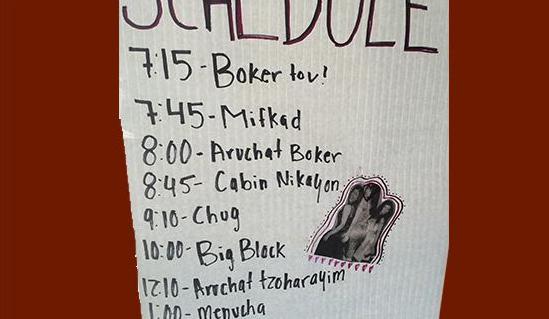 SCHEDULE
7:15-Boker tov!
7:45-Mifkad
8:00-Aruchat Boker
8:45-Cabin Nikayon
9:10-Chug
10:00-Big Block
12:10-Aruchat tzoharayim
1:00-Menucha